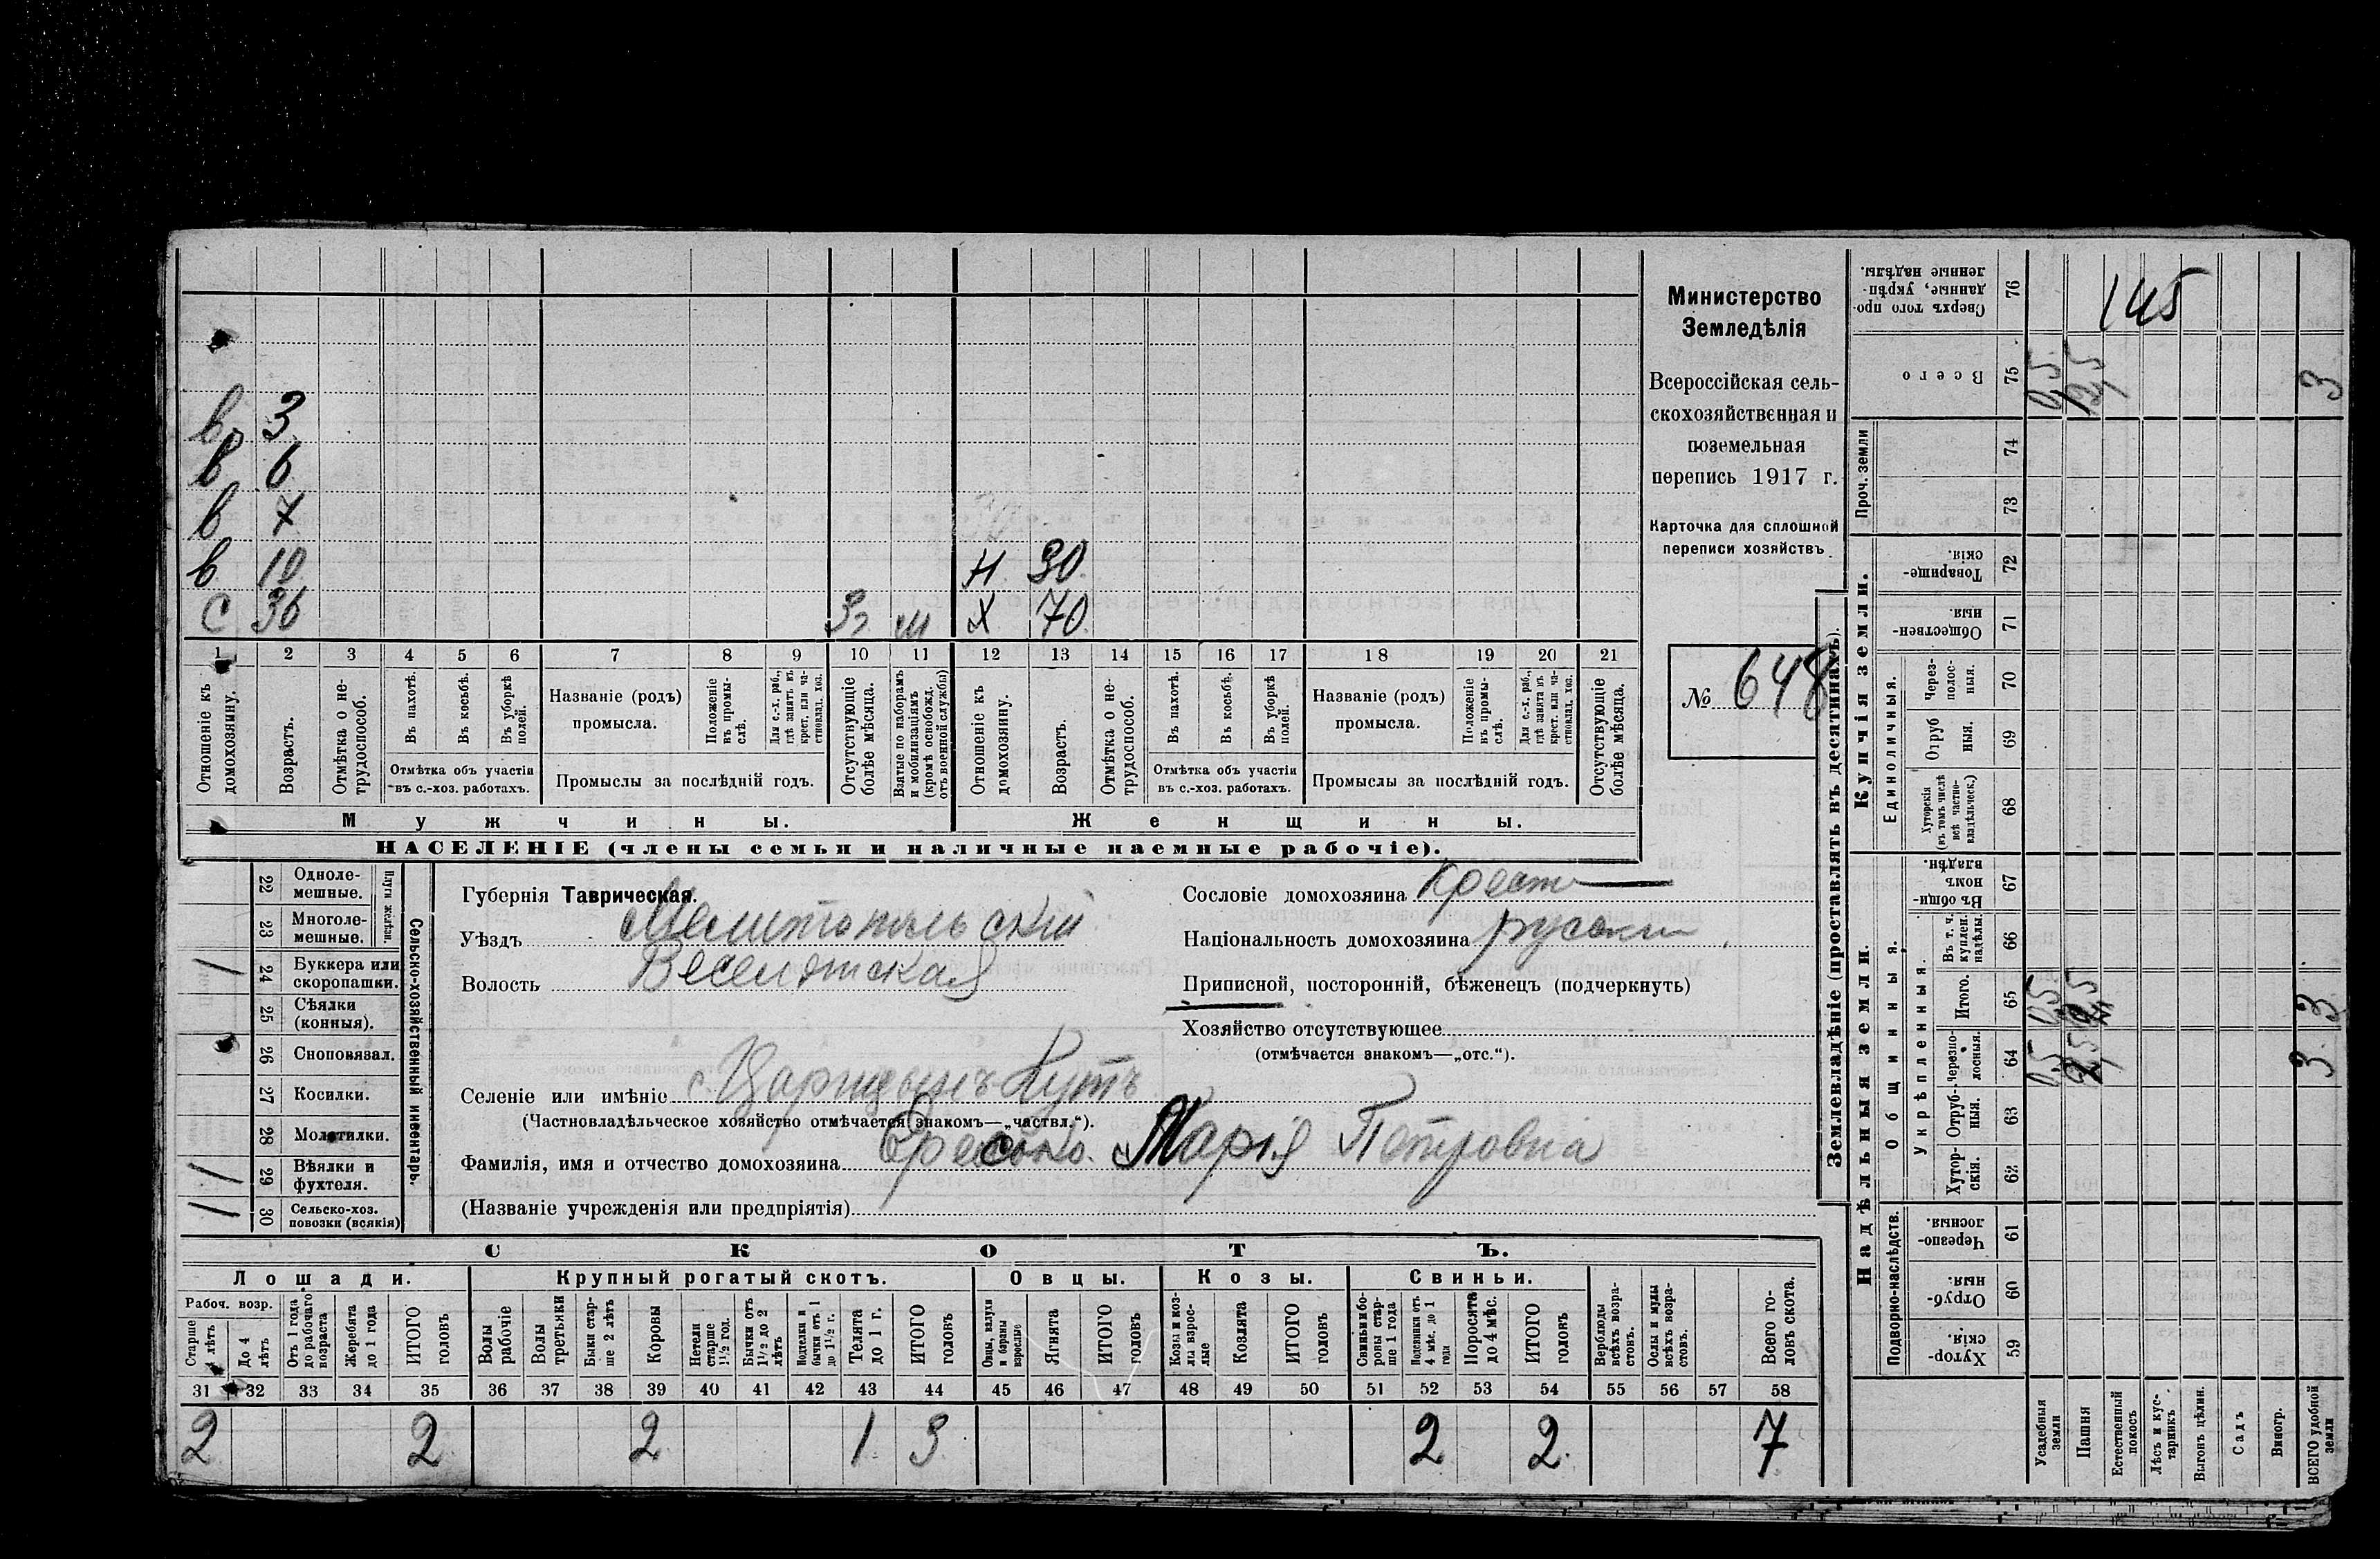 в 3
в 6
в 7
в 10 Н 30
С 36 Зг м Х 70
1 2 3 4 5 6 7 8 9 10 11 12 13 14 15 16 17 18 19 20 21
Отношеніе къ домохозяину.
Возрастъ.
Отмѣтка о не-трудоспособ.
Въ пахотѣ.
Въ косьбѣ.
Въ уборкѣ полей.
Отмѣтка объ участіи
въ с.-хоз. работахъ.
Названіе (родъ)
промысла.
Положеніе въ промы-слѣ.
Для с.-х. раб., гдѣ занятъ въ крест. или ча-стновлад. хоз.
Промыслы за послѣдній годъ.
Отсутствующіе болѣе мѣсяца.
Взятые по наборамъ и мобилизаціямъ (кромѣ освобожд. отъ военной службы)
Отношеніе къ домохозяину.
Возрастъ.
Отмѣтка о не-трудоспособ.
Въ пахотѣ.
Въ косьбѣ.
Въ уборкѣ полей.
Отмѣтка объ участіи
въ с.-хоз. работахъ.
Названіе (родъ)
промысла.
Положеніе въ промы-слѣ.
Для с.-х. раб., гдѣ занята въ крест. или ча-стновлад. хоз.
Промыслы за послѣдній годъ.
Отсутствующіе болѣе мѣсяца.
Мужчины.
Женщины.
НАСЕЛЕНІЕ (члены семьи и наличные наемные рабочіе).
Министерство
Земледѣлія
Всероссійская сель-
скохозяйственная и
поземельная
перепись 1917 г.
Карточка для сплошной
переписи хозяйствъ.
№ 648
Сельско-хозяйственный инвентарь.
Плуги желѣзн.
22 Однолемешные.
23 Многолемешные.
1 24 Буккера или скоропашки.
25 Сѣялки (конныя).
26 Сноповязал.
27 Косилки.
28 Молотилки.
1 29 Вѣялки и фухтеля.
1 30 Сельско-хоз. повозки (всякія)
Губернія Таврическая.
Уѣздъ Мелитопольскій
Волость Веселовская
Селеніе или имѣніе с. Царицынъ-Кутъ
(Частновладѣльческое хозяйство отмѣчается знакомъ—„частвл.“).
Фамилія, имя и отчество домохозяина Марія Петровна
(Названіе учрежденія или предпріятія)
Сословіе домохозяина Крест
Національность домохозяина русскій
Приписной, посторонній, бѣженецъ (подчеркнуть)
Хозяйство отсутствующее
(отмѣчается знакомъ—„отс.“).
СКОТЪ.
Лошади. Крупный рогатый скотъ. Овцы. Козы. Свиньи.
Рабоч. возр.
Старше 4 лѣтъ
До 4 лѣтъ
Отъ 1 года до рабочаго возраста
Жеребята до 1 года
ИТОГО головъ
Волы рабочіе
Волы третьяки
Быки стар-ше 2 лѣтъ
Коровы
Нетели старше 1½ год.
Бычки отъ 1½ до 2 лѣтъ
Подтелки и бычки отъ 1 до 1½ г.
Телята до 1 г.
ИТОГО головъ
Овцы, валухи и бараны взрослые
Ягнята
ИТОГО головъ
Козы и коз-лы взрос-лые
Козлята
ИТОГО головъ
Свиньи и бо-ровы стар-ше 1 года
Подсвинки отъ 4 мѣс. до 1 года
Поросята до 4 мѣс.
ИТОГО головъ
Верблюды всѣхъ возра-стовъ.
Ослы и мулы всѣхъ возра-стовъ.
Всего го-ловъ скота.
31 32 33 34 35 36 37 38 39 40 41 42 43 44 45 46 47 48 49 50 51 52 53 54 55 56 57 58
2 2 2 1 3 2 2 7
Землевладѣніе (проставлять въ десятинахъ).
Надѣльныя земли.
Купчія земли.
Проч. земли
Подворно-наслѣдств.
Общинныя.
Укрѣпленныя.
Единоличныя.
59 Хутор-скія.
60 Отруб-ныя.
61 Черезпо-лосныя.
62 Хутор-скія.
63 Отруб-ныя.
64 Черезпо-лосныя. 0,5 3
65 Итого. 0,5 3
66 Въ т. ч. куплен. надѣлы.
67 Въ общин-номъ владѣн.
68 Хуторскія (въ томъ числѣ всѣ частно-владѣльческ.)
69 Отрубныя.
70 Через-полос-ныя.
71 Обществен-ныя.
72 Товарище-скія.
73
74
75 Всего 0,5 2,5 3
76 Сверхъ того про-данные, укрѣп-ленные надѣлы.
145
Усадебныя земли
Пашня
Естественный покосъ
Лѣсъ и кус-тарникъ
Выгонъ цѣлин.
Садъ
Виногр.
ВСЕГО удобной земли